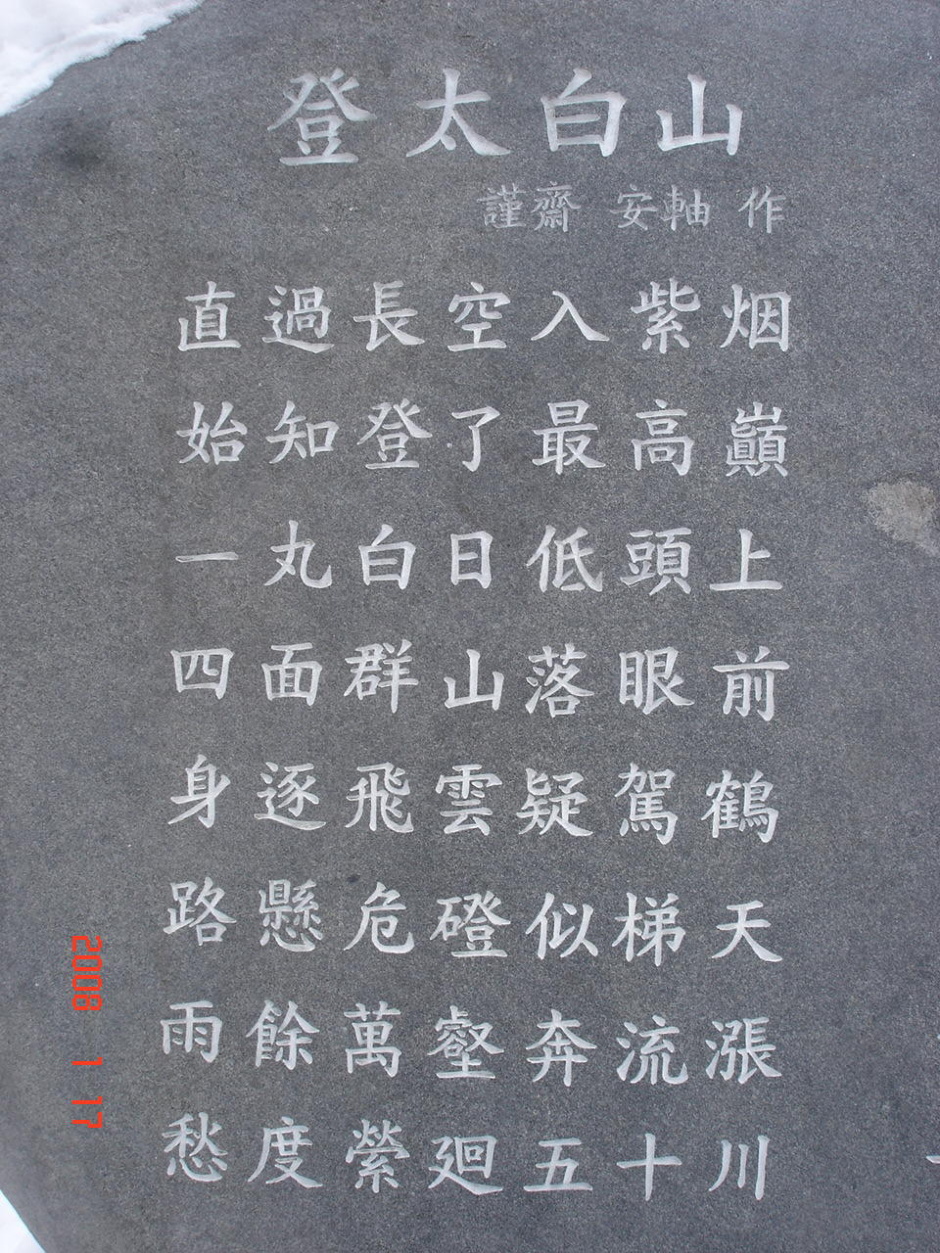 登太白山
謹齋 安軸 作
直過長空入紫烟
始知登了最高巓
一丸白日低頭上
四面群山落眼前
身逐飛雲疑駕鶴
路懸危磴似梯天
雨餘萬壑奔流漲
愁度縈廻五十川
2008 1 17